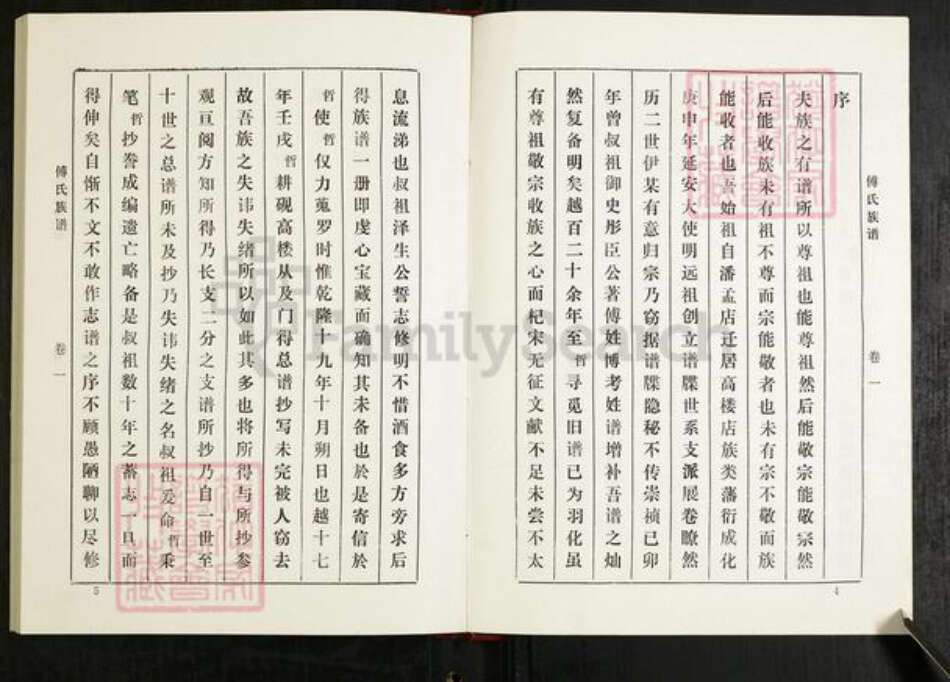 傅氏族谱
卷一
序
夫族之有谱所以尊祖也能尊祖然后能敬宗能敬宗然
后能收族未有祖不尊而宗能敬者也未有宗不敬而族
能收者也吾始祖自潘孟店迁居高楼店族类藩衍成化
庚申年延安大使明远祖创立谱牒世系支派展卷瞭然
历二世伊某有意归宗乃窃据谱牒隐秘不传崇祯已卯
年曾叔祖御史彤臣公著傅姓博考姓谱增补吾谱之灿
然复备明矣越百二十余年至哲寻觅旧谱已为羽化虽
有尊祖敬宗收族之心而杞宋无征文献不足未尝不太
4
息流涕也叔祖泽生公誓志修明不惜酒食多方旁求后
得族谱一册即虔心宝藏而确知其未备也於是寄信於
哲使哲仅力蒐罗时惟乾隆十九年十月朔日也越十七
年壬戌哲耕砚高楼从及门得总谱抄写未完被人窃去
故吾族之失讳失绪所以如此其多也将所得与所抄参
观亘阅方知所得乃长支二分之支谱所抄乃自一世至
十世之总谱所未及抄乃失讳失绪之名叔祖爰命哲秉
笔哲抄誊成编遗亡略备是叔祖数十年之蓄志一旦而
得伸矣自惭不文不敢作志谱之序不顾愚陋聊以尽修
傅氏族谱
卷一
5
FamilySearch